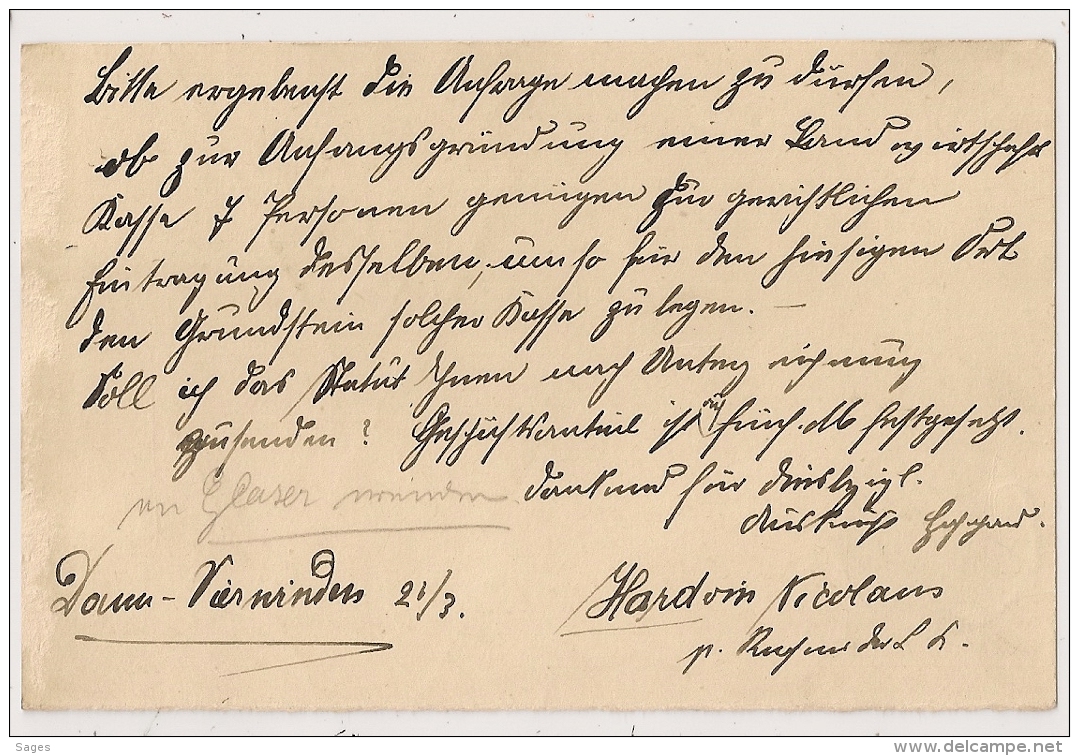 Bitte ergebenst die Anfrage machen zu dürfen,
ob zur Anfangsgründung einer Landwirtschafts
Kasse 7 Personen genügen zur gerichtlichen
Eintragung desselben, um so für den hiesigen Ort
den Grundstein solcher Kasse zu legen. –
Soll ich das Statut Ihnen nach Unterzeichnung
zusenden? Geschäftsanteil ist auf fünf M festgesetzt.
an Glaser wenden
Dankend für diesbezügl.
Auskunft
Dann-Vierwinden 21/3.
Hardoin Nicolaus
p. Rechner der L K.
Sages
www.delcampe.net